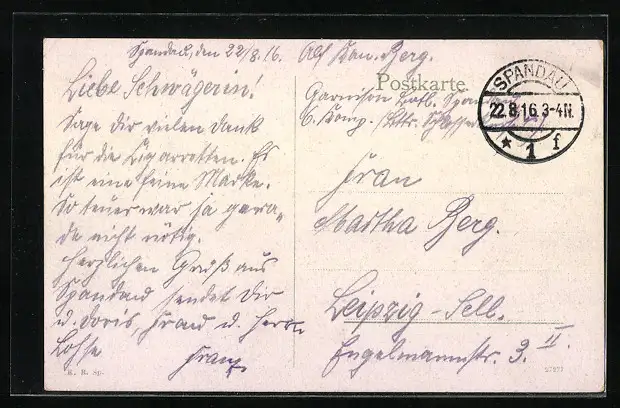 Spandau, den 22/8.16.
Liebe Schwägerin.
Sage Dir vielen Dank
für die Zigarretten. Es
ist eine feine Marke.
So teuer war ja gera-
de nicht nötig.
Herzlichen Gruß aus
Spandau sendet Dir
u. Doris, Frau u. Herrn
Lohse Franz
K. R. Sp.
Berg.
Postkarte
Garnison Batl.
6. Komp.
SPANDAU
22.8.16.3-4N.
* 1 f
Frau
Martha Berg.
Leipzig-Sell.
Engelmannstr. 3. II.